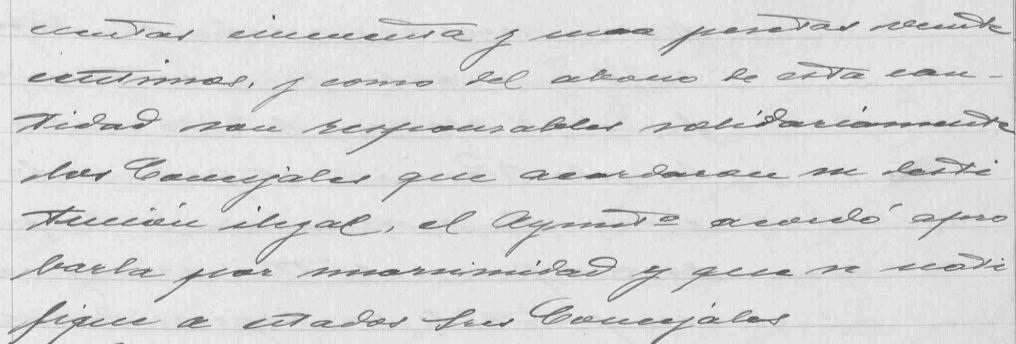 cientas cincuenta y una pesetas veinte
centimos, y como del abono de esta can-
tidad son responsables solidariamente
los Concejales que acordaron su desti
tución ilegal, el Ayuntº acordó apro
barla por unanimidad y que se noti
fique a citados Sres Concejales